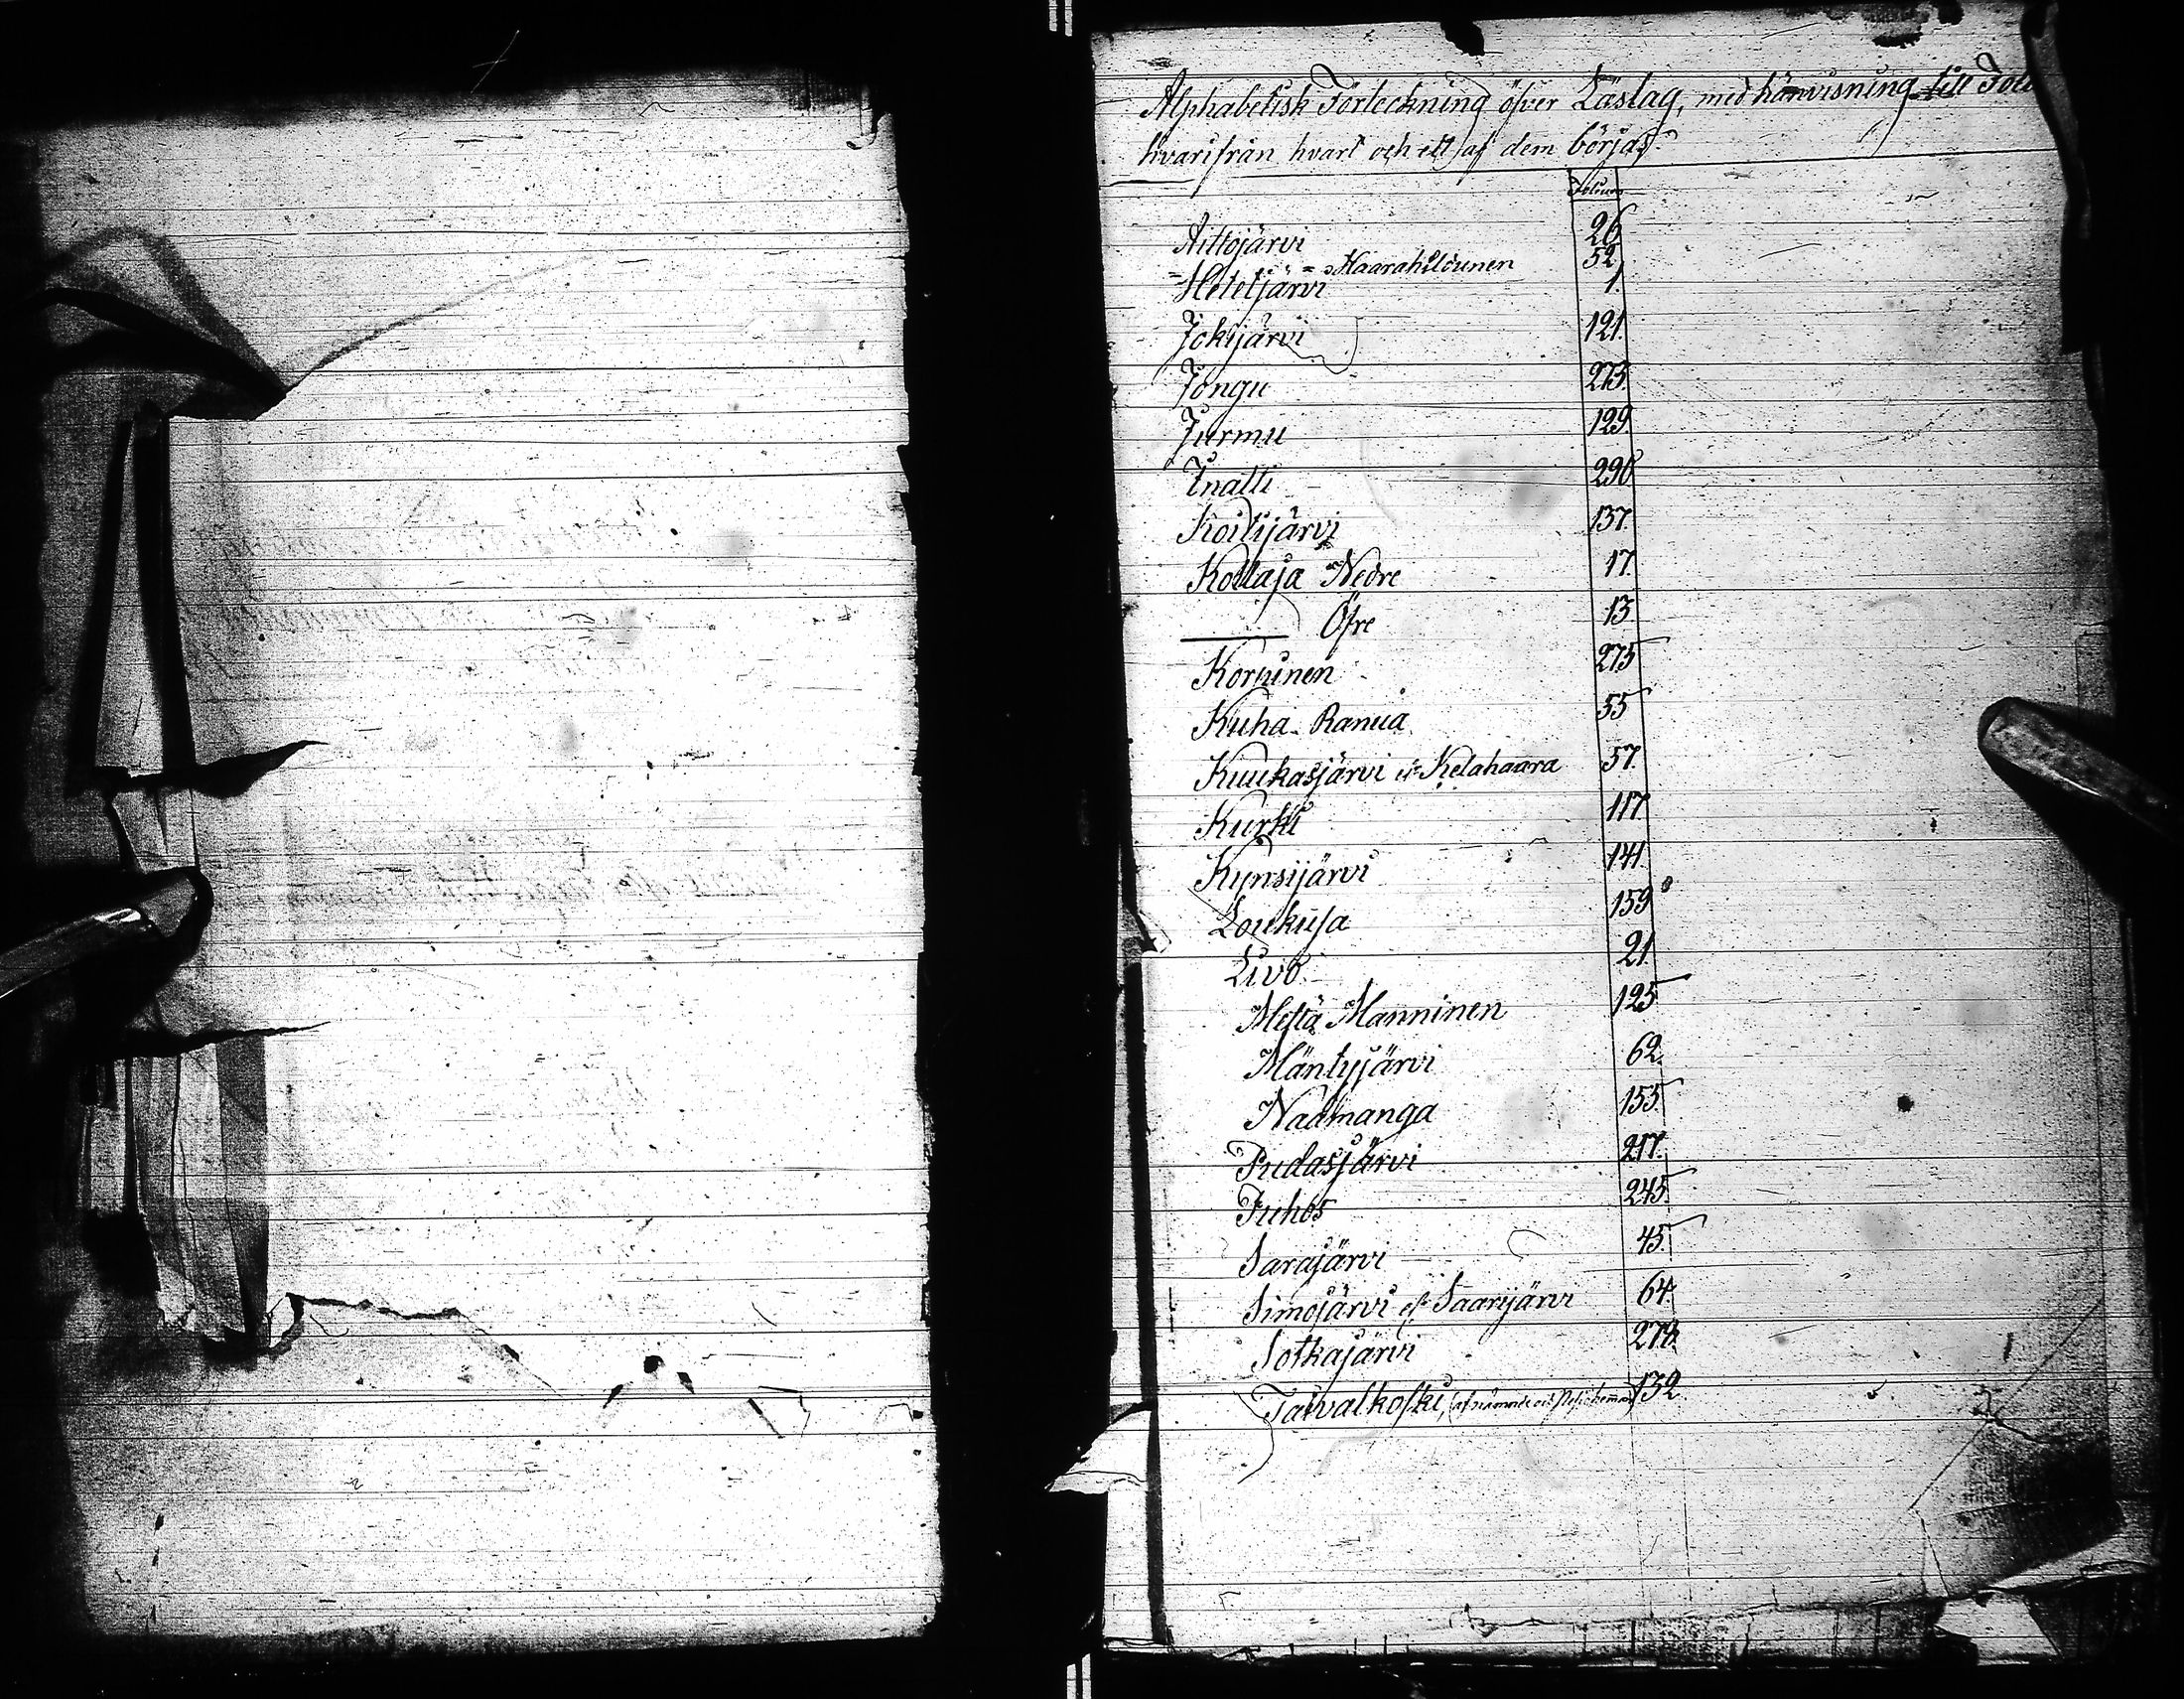 Alphabetisk Förteckning öfver Läslag, med hänvisning till Foli
hvarifrån hvart och ett af dem börjas.
Folium
Aittojärvi 26
= = Haarahiltunen 52
Hetetjärvi 1.
Jokijärvi 121.
Jongu 273.
Jurmu 129.
Inatti 290
Koitijärvi 137
Kollaja Nedre 17
——— Öfre 13
Korpinen 275
Kuha Ranua 55
Kuukasjärvi et Kelahaara 57.
Kurki 117
Kynsijärvi 141.
Loukusa 159
Livo 21
Metsä Manninen 125
Mäntyjärvi 62.
Naamanga 155
Pudasjärvi 217.
Puhos 245
Sarajärvi 45.
Simojärvi et Saarijärvi 64.
Sotkajärvi 279.
Taivalkoski, 132